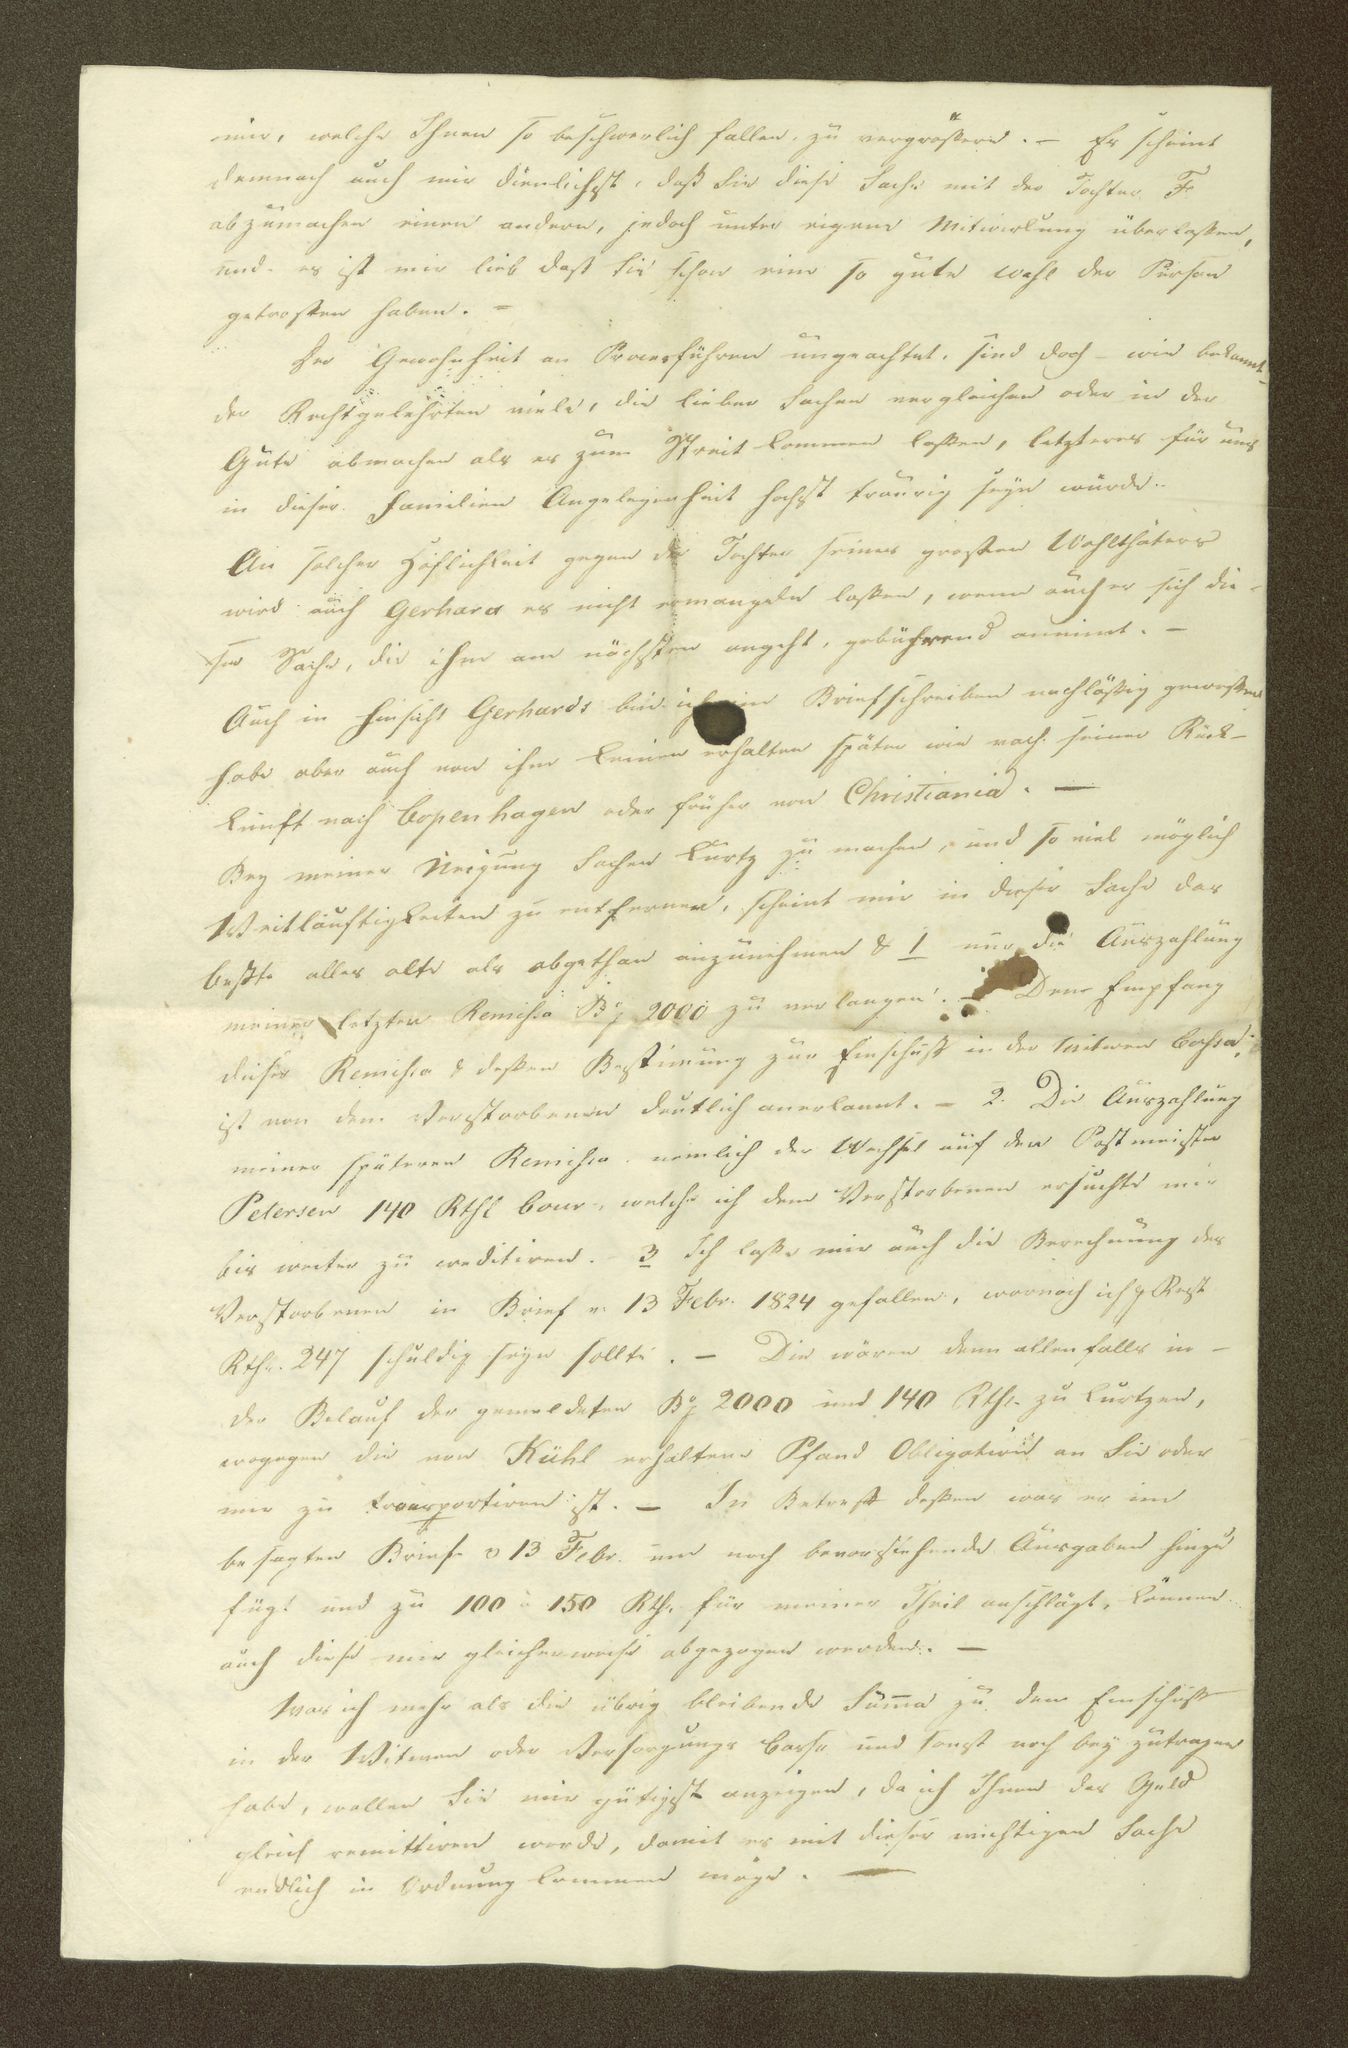 mir, welche Ihnen so beschwerlich fallen, zu vergrößern. – Es scheint
demnach auch mir dienlichst, daß Sie diese Sache mit der Tochter F.
abzumachen einen andern, jedoch unter eigene Mitwirkung überlaßen,
und es ist mir lieb daß Sie schon eine so gute Wahl der Person
getroffen haben. –
Der Gewohnheit an Procesführen ungeachtet, sind doch – wie bekannt –
der Rechtgelehrten viele, die lieber Sachen vergleichen oder in der
Güte abmachen als es zum Streit kommen laßen, letzteres für uns
in dieser Familien Angelegenheit höchst traurig seyn würde.
An solcher Höflichkeit gegen die Tochter seines großen Wohlthäters
wird auch Gerhard es nicht ermangeln laßen, wenn auch er sich die-
ser Sache, die ihm am nächsten angeht, gebührend annimt. –
Auch in Hinsicht Gerhards bin ich im Briefschreiben nachläßig geweßen
habe aber auch von ihm keinen erhalten später wie nach seiner Rück-
kunft nach Copenhagen oder früher von Christiania. —
Bey meiner Neigung Sachen kurtz zu machen, und so viel möglich
Weitläuftigkeiten zu entfernen, scheint mir in dieser Sache das
beßte alles alte als abgethan anzunehmen & 1 nur die Auszahlung
meiner letzten Remisse 2000 zu verlangen. – Den Empfang
dieser Remisse & deßen Bestimung zur Einschuß in der Witwen Casse
ist von dem Verstorbenen deutlich anerkannt. – 2. Die Auszahlung
meiner späteren Remisse nemlich der Wechsel auf den Postmeister
Petersen 140 Rthl Cour, welche ich dem Verstorbenen ersuchte mir
bis weiter zu creditiren. 3 Ich laße mir auch die Berechnung des
Verstorbenen in Brief v. 13 Febr. 1824 gefallen, wornach ich p Rest
Rth. 247 schuldig seyn sollte. – Die wären denn allenfalls in –
der Belauf der gemeldeten 2000 und 140 Rth. zu kurtzen,
wogegen die von Kühl erhaltene Pfand Obligation an Sie oder
mir zu transportiren ist. – In Betreff deßen was er im
besagten Briefe v 13 Febr. um noch bevorstehende Ausgaben hinzu
fügt und zu 100 à 150 Rth. für meiner Theil anschlägt, können
auch diese mir gleicherweise abgezogen werden. —
Was ich mehr als die übrig bleibende Suma zu dem Einschuß
in der Witwen oder Versorgungs Casse und sonst noch bey zutragen
habe, wollen Sie mir gütigst anzeigen, da ich Ihnen das Geld
gleich remittiren werde, damit es mit dieser wichtigen Sache
endlich in Ordnung kommen möge. —